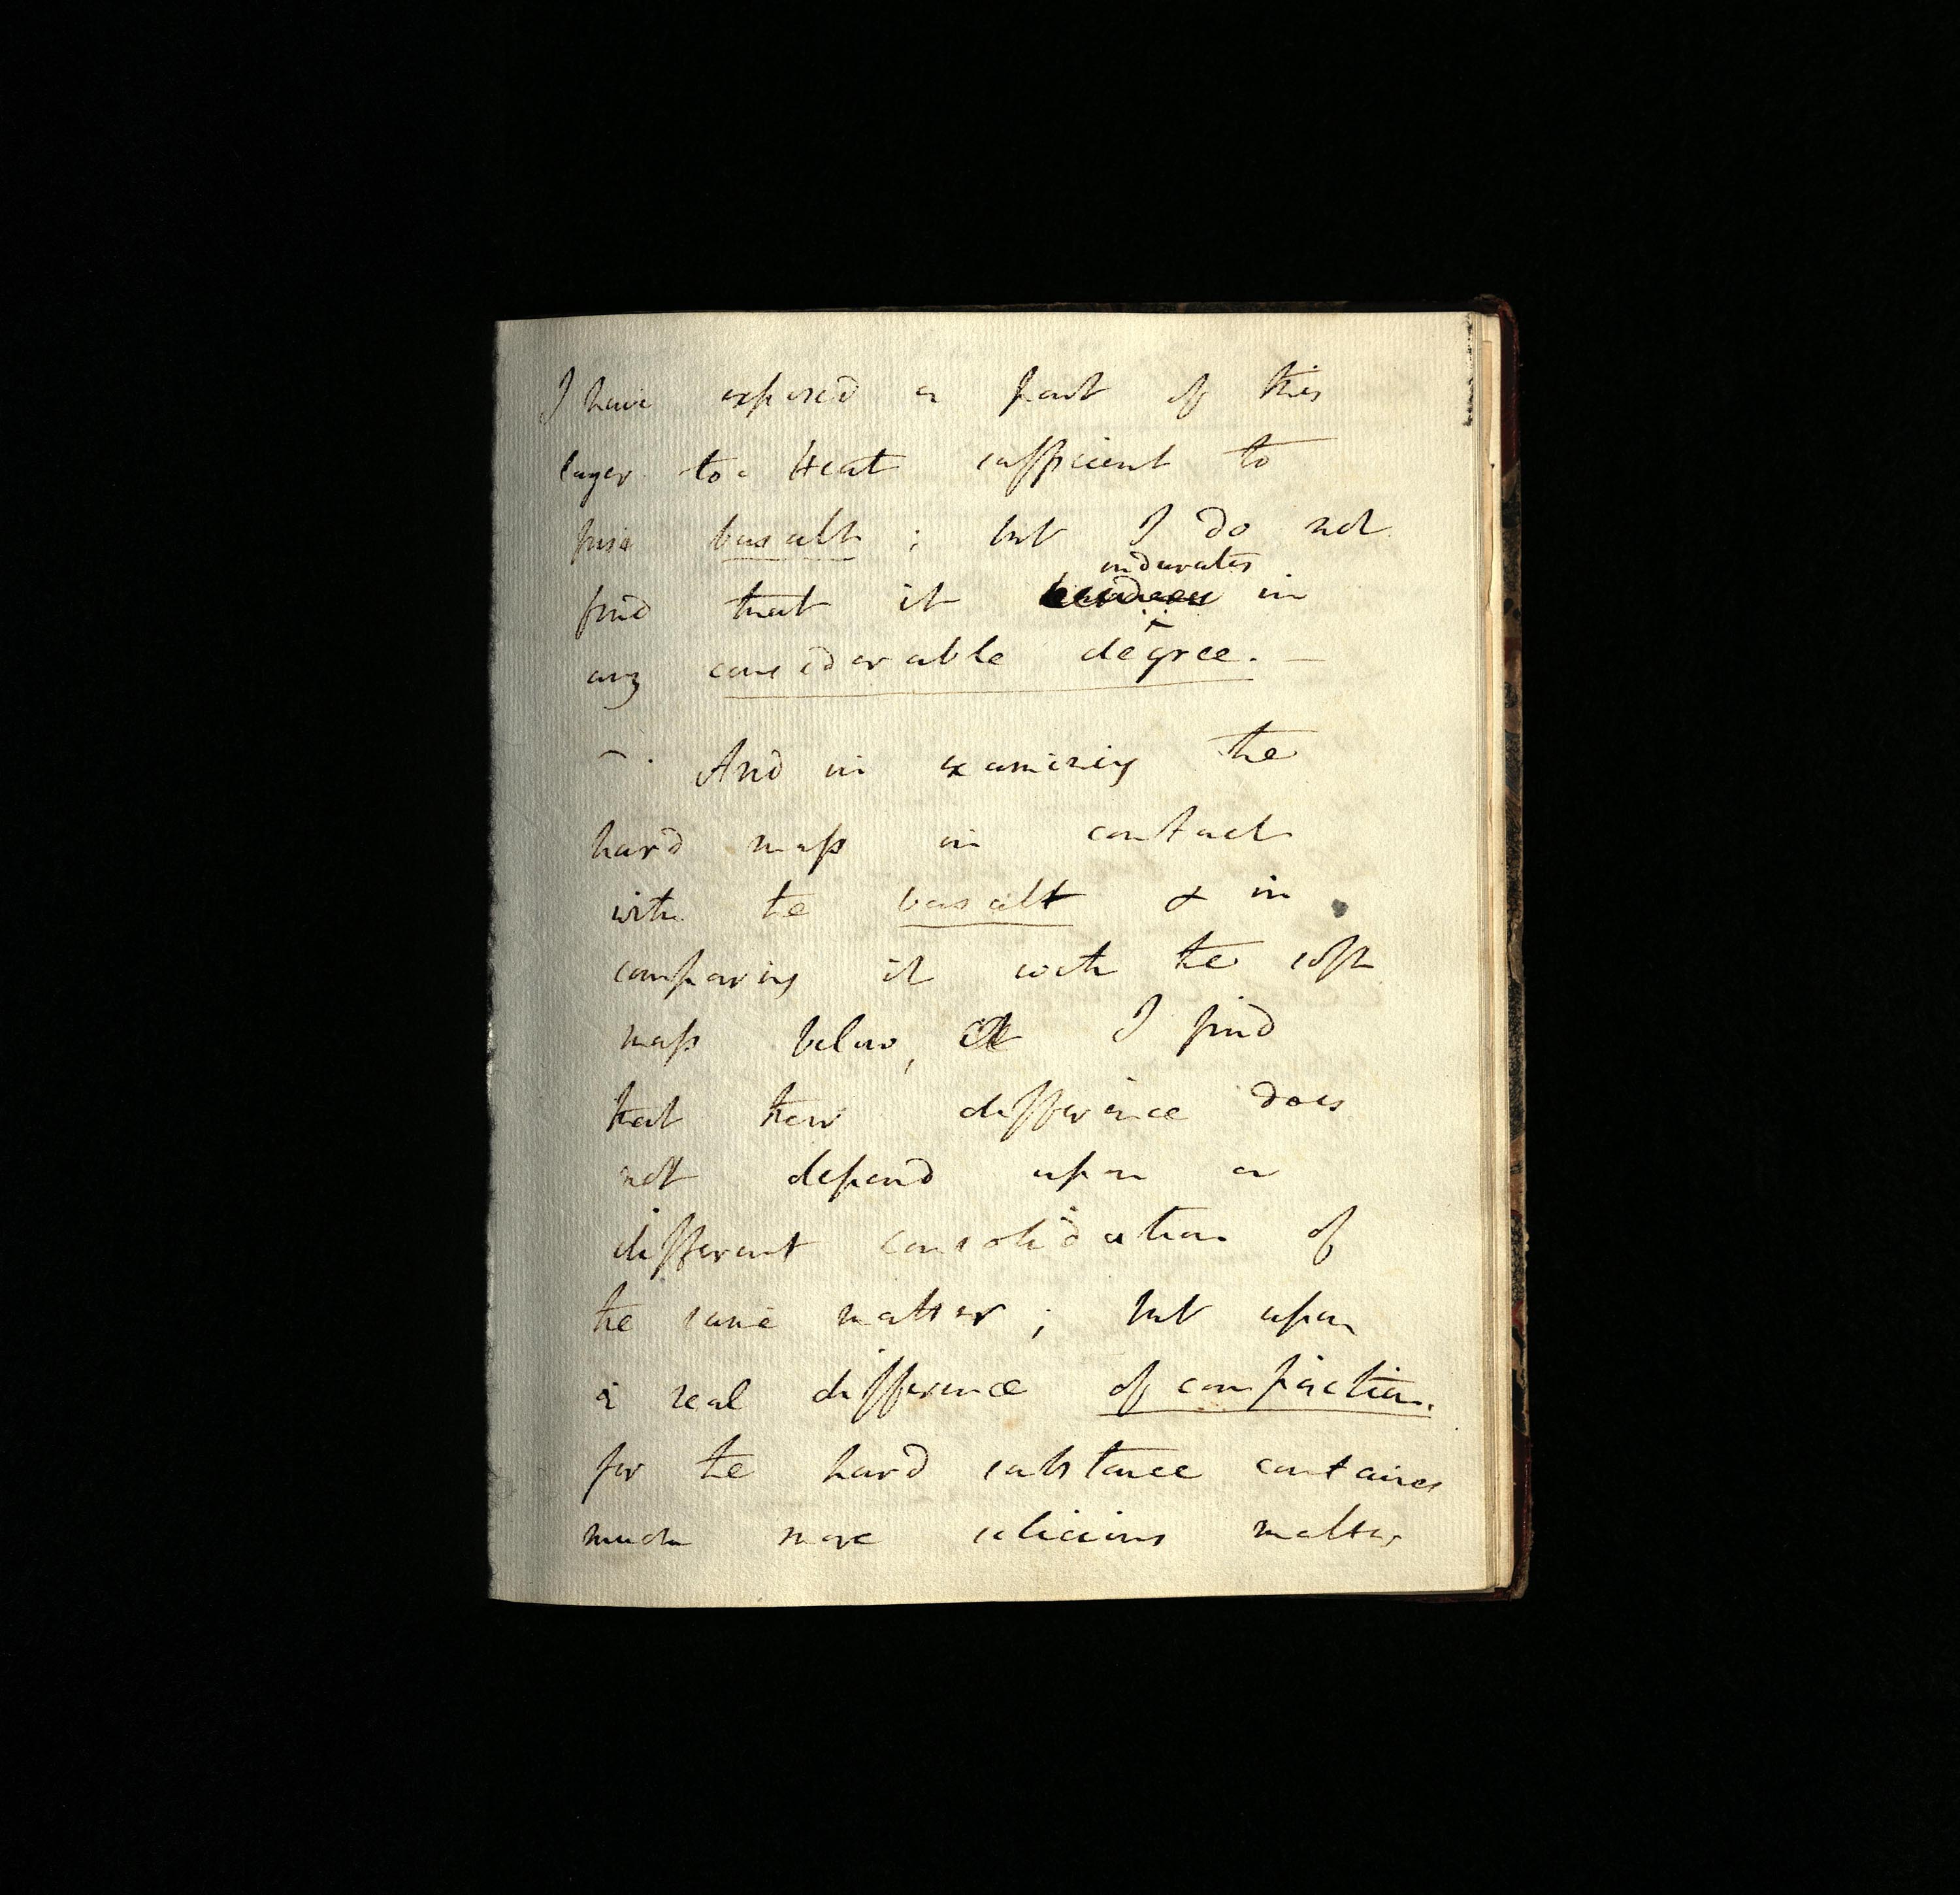 I have exposed a part of this
layer to a Heat sufficient to
fuse basalt; but I do not
indurates
find that it hardens in
any considerable degree. —
— . And in examining the
hard mass in contact
with the basalt & in
comparing it with the soft
mass below, I find
that their difference does
not depend upon a
different consolidation of
the same matter; but upon
a real difference of composition.
for the hard substance contains
much more silicious matter